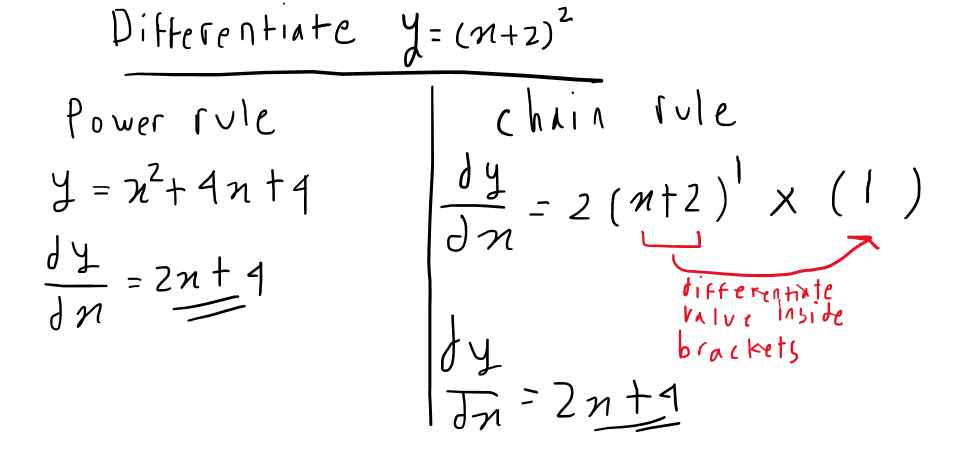 Differentiate y = (x+2)²
Power rule
y = x² + 4x + 4
dy/dx = 2x + 4
chain rule
dy/dx = 2(x+2)¹ × (1)
differentiate
value inside
brackets
dy/dx = 2x+4